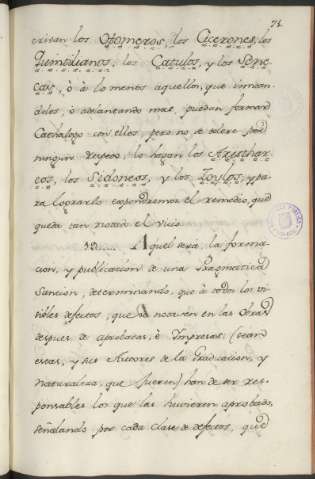 71.
crivan los Homeros, los Cicerones, los
Quintilianos, los Catulos, y los Sene-
cas, ò à lo menos aquellos, que imitan-
dolos, ò adelantando mas, puedan formar
Cathalogo con ellos, pero no se tolere por
ningun respeto, lo hagan los Aristhar-
cos, los Sidoneos, y los Zoylos, y pa-
ra lograrlo expondremos el remedio, que
queda tan notado el vicio.
Aquel será, la forma-
cion, y publicacion de una Pragmatica
Sancion, determinando, que à todos los vi-
sibles defectos, que se notaren en las Obras
despues de aprobadas, è Impresas (sean
estas, y sus Autores de la Graduacion, y
naturaleza, que fueren) han de ser res-
ponsables los que las huvieren aprobado,
señalando por cada clase de defectos, que